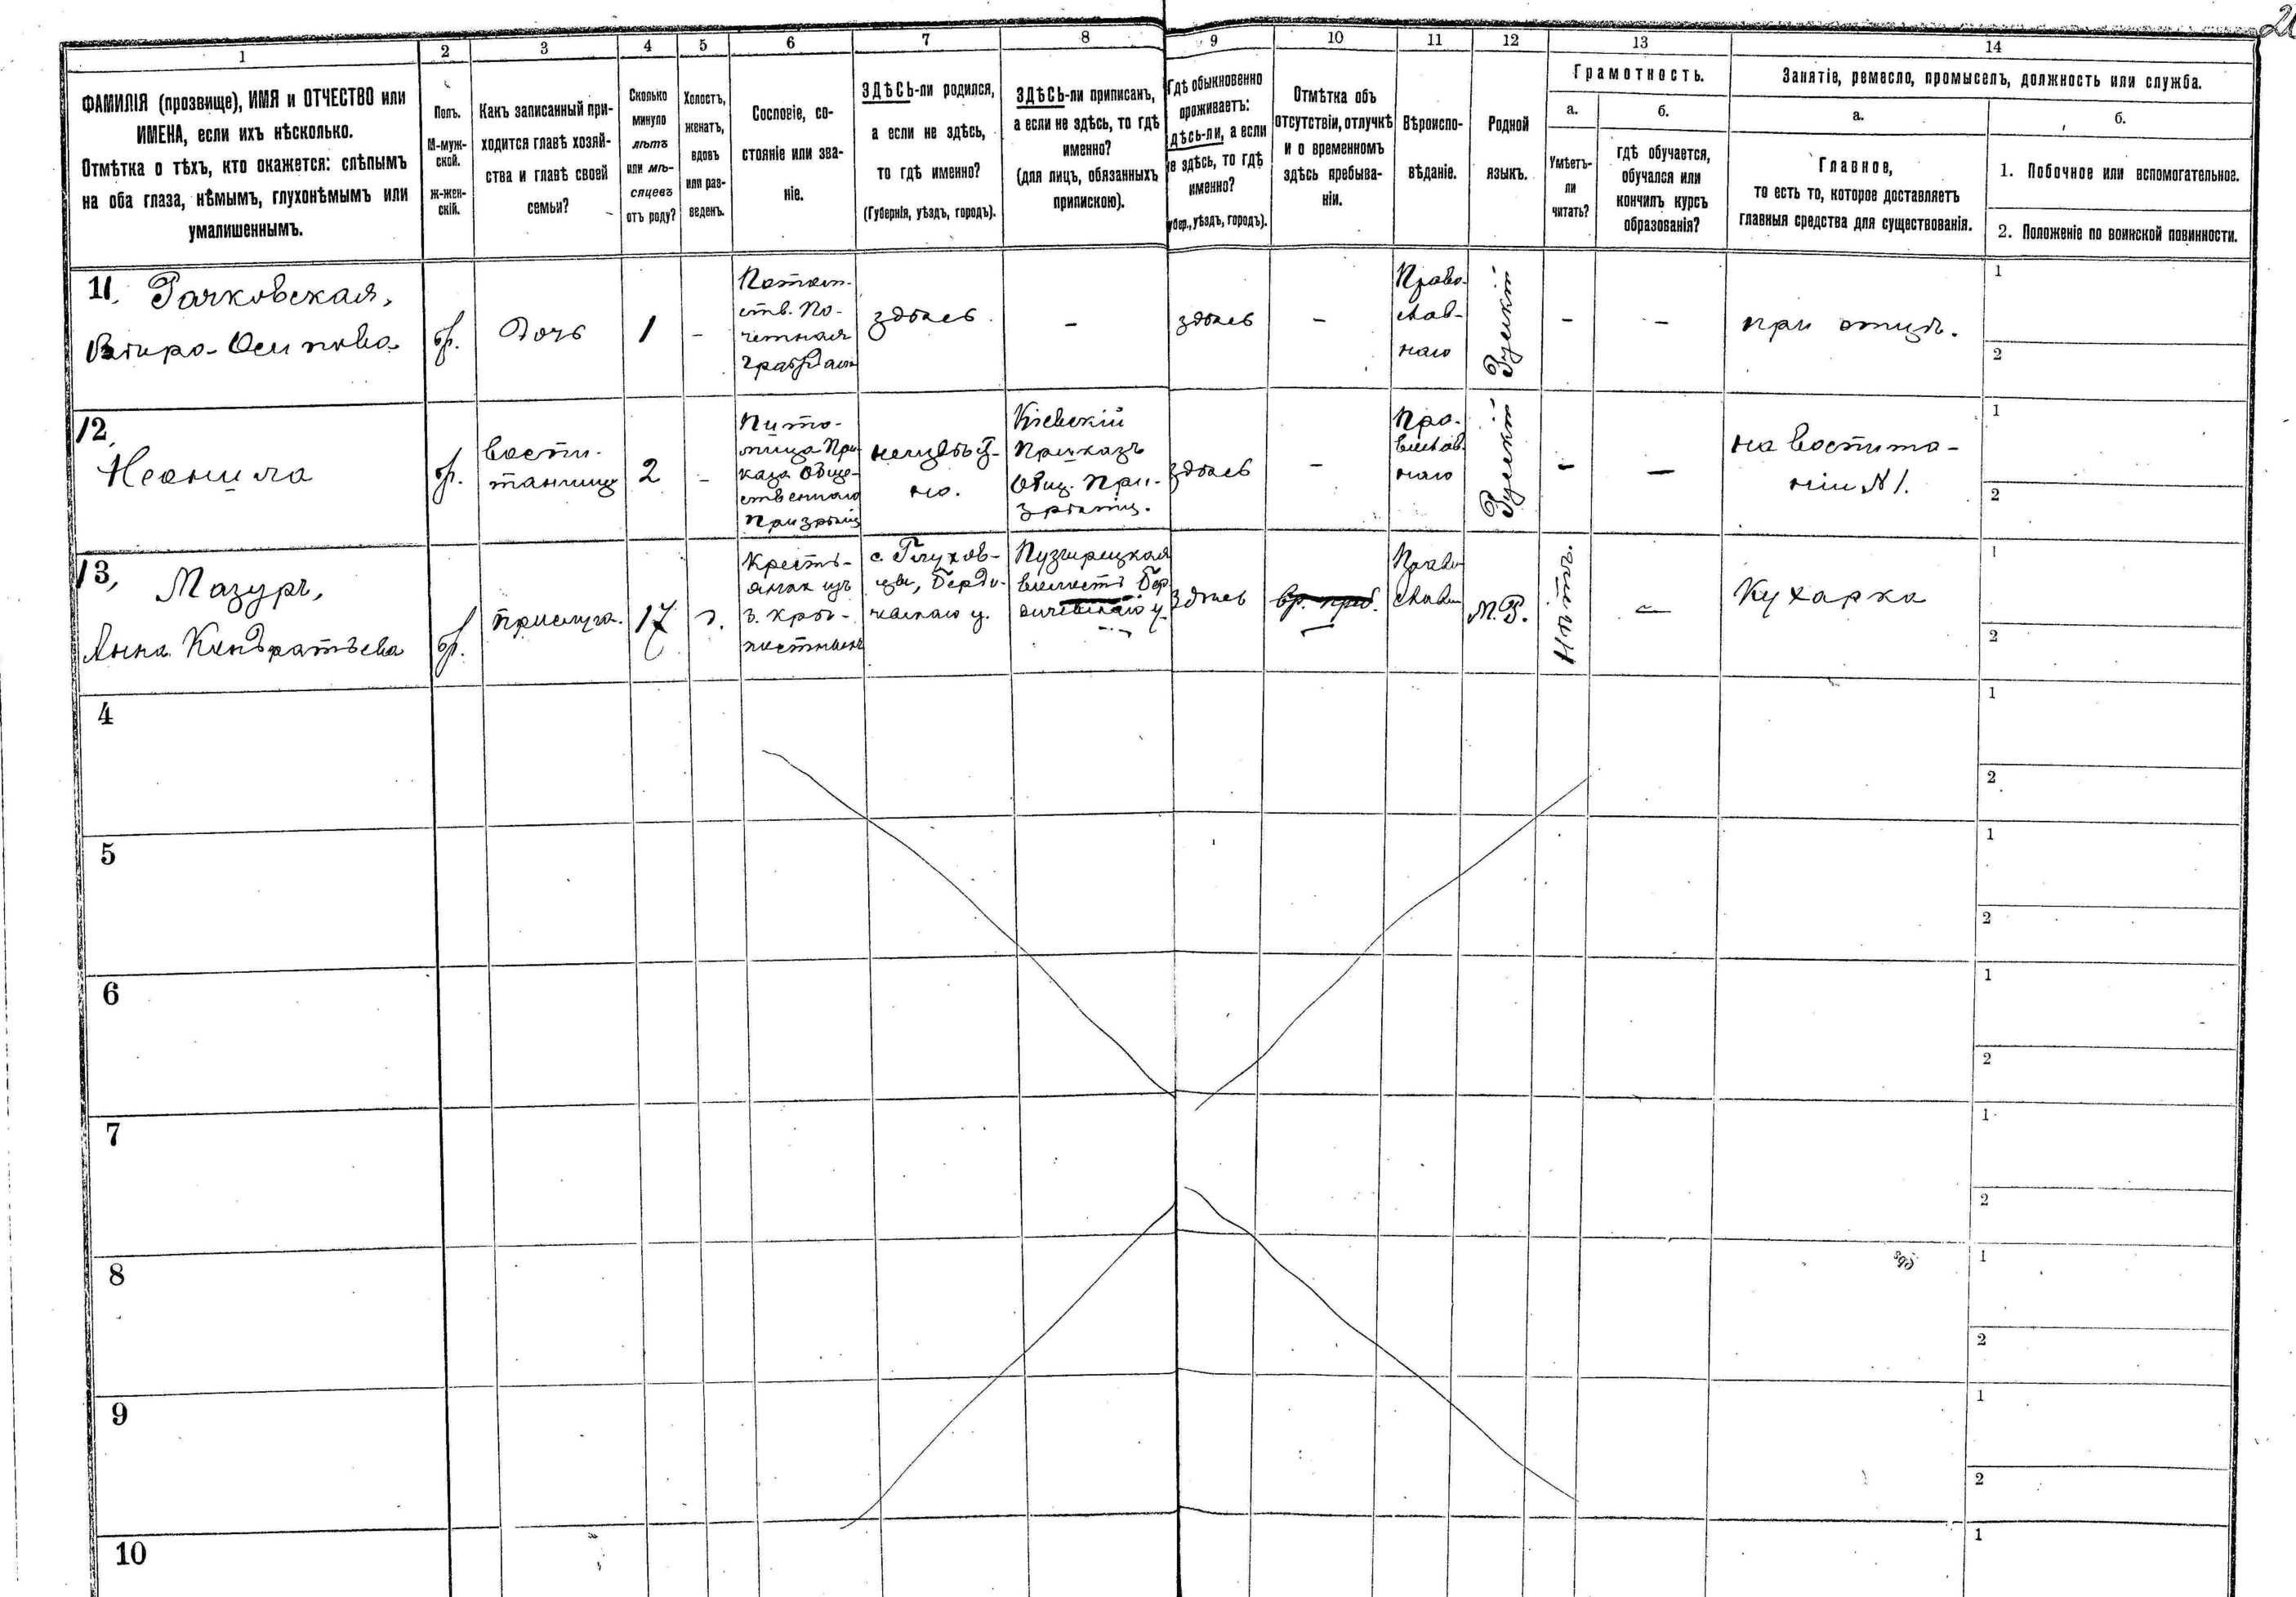 20
1 2 3 4 5 6 7 8 9 10 11 12 13 14
ФАМИЛІЯ (прозвище), ИМЯ и ОТЧЕСТВО или
ИМЕНА, если ихъ нѣсколько.
Отмѣтка о тѣхъ, кто окажется: слѣпымъ
на оба глаза, нѣмымъ, глухонѣмымъ или
умалишеннымъ.
Полъ.
М-муж-
ской.
Ж-жен-
скій.
Какъ записанный при-
ходится главѣ хозяй-
ства и главѣ своей
семьи?
Сколько
минуло
лѣтъ
или мѣ-
сяцевъ
отъ роду?
Холостъ,
женатъ,
вдовъ
или раз-
веденъ.
Сословіе, со-
стояніе или зва-
ніе.
ЗДѢСЬ-ли родился,
а если не здѣсь,
то гдѣ именно?
(Губернія, уѣздъ, городъ).
ЗДѢСЬ-ли приписанъ,
а если не здѣсь, то гдѣ
именно?
(для лицъ, обязанныхъ
припискою).
Гдѣ обыкновенно
проживаетъ:
дѣсь-ли, а если
е здѣсь, то гдѣ
именно?
убер., уѣздъ, городъ).
Отмѣтка объ
отсутствіи, отлучкѣ
и о временномъ
здѣсь пребыва-
ніи.
Вѣроиспо-
вѣданіе.
Родной
языкъ.
Грамотность.
а.
Умѣетъ-
ли
читать?
б.
гдѣ обучается,
обучался или
кончилъ курсъ
образованія?
Занятіе, ремесло, промыселъ, должность или служба.
а.
Главное,
то есть то, которое доставляетъ
главныя средства для существованія.
б.
1. Побочное или вспомогательное.
2. Положеніе по воинской повинности.
11. Рачковская,
Вѣра Осипова
ж.
Дочь
1
-
Потом-
ств. По-
четная
граждан
здѣсь
-
здѣсь
-
Право-
слав-
ная
Рускій
-
-
при отцѣ.
1
2
12,
Неонила
ж.
воспи-
танница
2
-
Пито-
мица При-
каза Обще-
ственнаго
Призрѣнія
неизвѣст-
но.
Кіевскій
Приказъ
Общ. При-
зрѣнія.
здѣсь
-
Пра-
вослав-
ная
Рускій
-
-
на воспита-
ніи №1.
1
2
13,
Мазуръ,
Анна Кондратьева
ж.
прислуга.
17
д.
Кресть-
янка изъ
б. крѣ-
постныхъ
с. Глухов-
цы, Берди-
чевскаго у.
Пузырецкая
волость Бер
дичевскаго у.
здѣсь
вр. преб.
-
Право
слав
М.Р.
Нѣтъ.
-
Кухарка
1
2
4
1
2
5
1
2
6
1
2
7
1
2
8
1
2
9
1
2
10
1